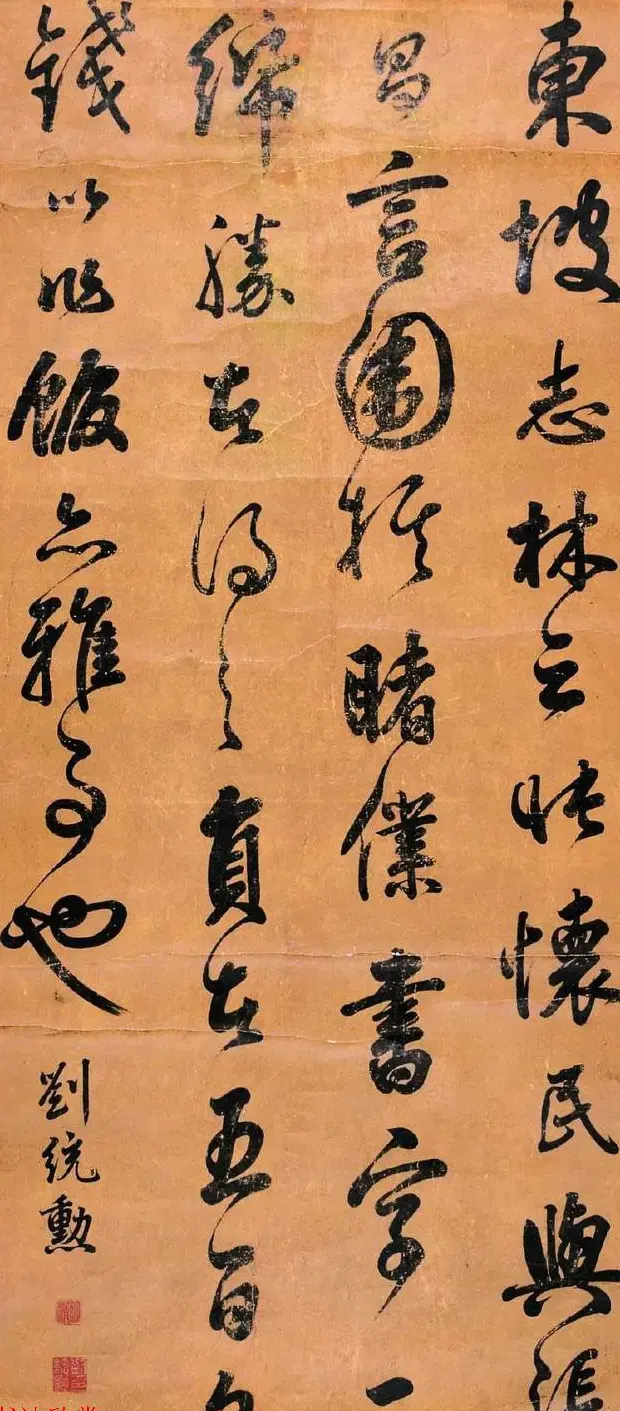 東坡志林云張懷民與張
昌言圍棋賭僕書字一
紙勝者得之負者五百
錢以作飯亦雅事也
劉統勳